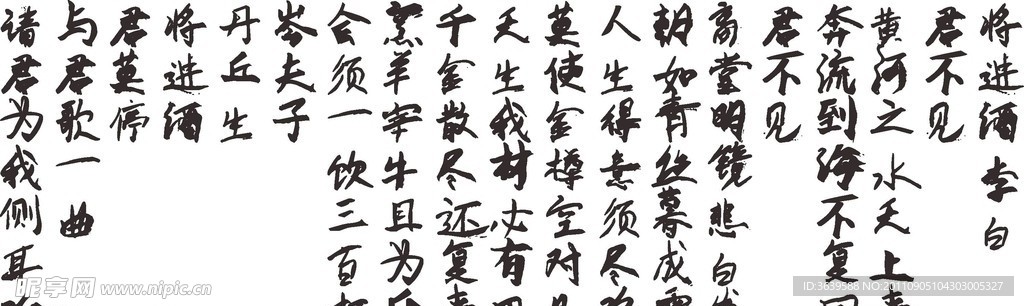 将进酒 李白
君不见
黄河之水天上
奔流到海不复
君不见
高堂明镜悲白
朝如青丝暮成
人生得意须尽
莫使金樽空对
天生我材必有
千金散尽还复
烹羊宰牛且为
会须一饮三百
岑夫子
丹丘生
将进酒
君莫停
与君歌一曲
诸君为我侧耳
昵享网 www.nipic.cn
ID:3639588 NO:20110905104303005327